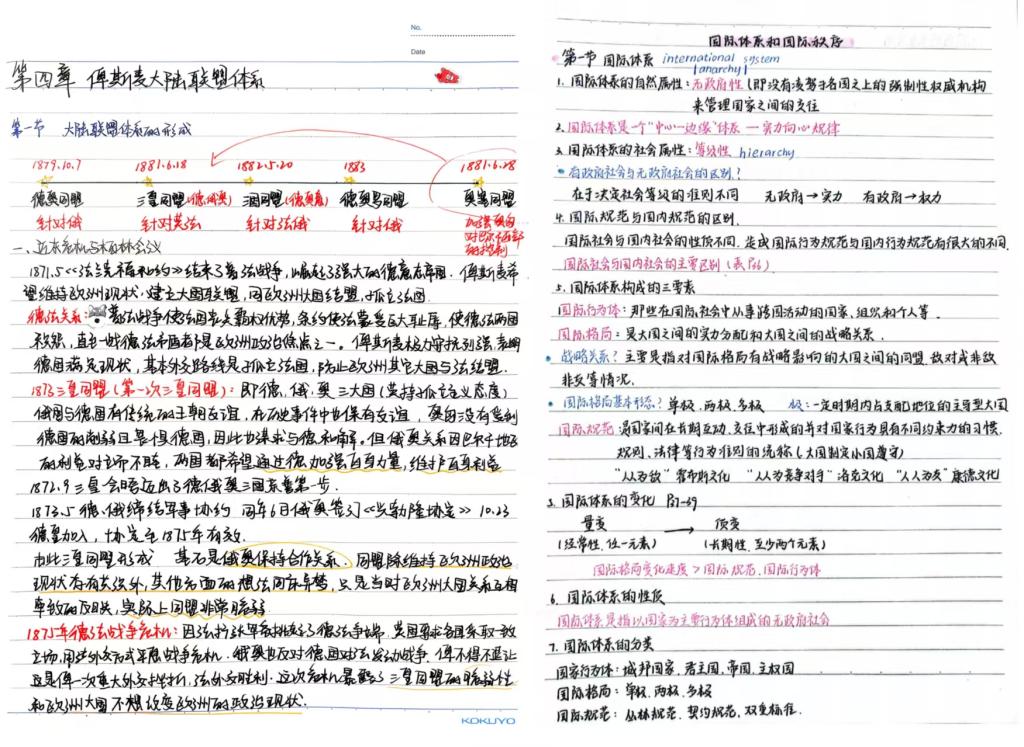 No.
Date
第四章 俾斯麦大陆联盟体系
第一节 大陆联盟体系的形成
1879.10.7 1881.6.18 1882.5.20 1883 1881.6.28
德奥同盟 三皇同盟(德俄奥) 三国同盟(德奥意) 德奥罗同盟 奥塞同盟
针对俄 针对英法 针对法俄 针对俄 加强奥匈
对巴尔干西部
的控制
一、近东危机与柏林会议
1871.5《法兰克福和约》结束了普法战争，崛起了强大的德意志帝国. 俾斯麦希
望维持欧洲现状，建立大国联盟，同欧洲大国结盟，孤立法国.
德法关系: 普法战争使法国丧失霸权优势，条约使法蒙受巨大耻辱，使德法两国
积怨，直至一战德法矛盾都是欧洲政治焦点之一。俾斯麦极力守护列强，表明
德国满足现状，基本外交路线是孤立法国，防止欧洲其它大国与法结盟.
1873三皇同盟(第一次三皇同盟): 即德，俄，奥三大国(坚持孤立主义态度)
俄国与德国有传统的王朝友谊，在历史事件中也保有友谊，奥匈没有受到
德国的削弱且畏惧德国，因此也谋求与德和解。但俄奥关系因巴尔干地区
的利益对立而不睦，两国都希望通过德加强自身力量，维护自身利益
1872.9 三皇会晤迈出了德俄奥三国亲善第一步.
1873.5 德、俄缔结军事协约 同年6月俄奥签订《兴勃隆协定》10.23
德皇加入，协定至1875年有效.
由此三皇同盟形成 基石是俄奥保持合作关系. 同盟除维持欧洲政治
现状存有共识外，其他方面的想法同床异梦，只是当时欧洲大国关系互相
牵致的反映，实际上同盟非常脆弱
1875年德法战争危机: 因法扩张军备挑起了德法争端，英国要求各国采取一致
立场，用外交方式平息战争危机. 俄奥也反对德国对法发动战争. 俾不得不退让
这是俾一次重大外交挫折，法外交胜利. 这次危机暴露了三皇同盟的脆弱性
和欧洲大国不想改变欧洲的政治现状.
KOKUYO
国际体系和国际秩序
第一节 国际体系 international system
anarchy
1. 国际体系的自然属性: 无政府性(即没有凌驾于各国之上的强制性权威机构
来管理国家之间的交往
2. 国际体系是一个"中心—边缘"体系 — 实力向心规律
3. 国际体系的社会属性: 等级性 hierarchy
有政府社会与无政府社会的区别?
在于决定社会等级的准则不同 无政府→实力 有政府→权力
4. 国际规范与国内规范的区别.
国际社会与国内社会的性质不同，造成国际行为规范与国内行为规范有很大的不同.
国际社会与国内社会的主要区别(表P66)
5. 国际体系构成的三要素
国际行为体: 那些在国际社会中从事跨国活动的国家、组织和个人等.
国际格局: 是大国之间的实力分配和大国之间的战略关系.
战略关系? 主要是指对国际格局有战略影响的大国之间的同盟、敌对或非敌
非友等情况.
国际格局基本形态? 单极、两极、多极 极: 一定时期内占支配地位的主导型大国
国际规范: 指国家间在长期互动、交往中形成的并对国家行为具有不同约束力的习惯、
规则、法律等行为准则的统称 (大国制定小国遵守)
"人人为敌" 霍布斯文化 "人人为竞争对手" 洛克文化 "人人为友" 康德文化
5. 国际体系的变化 P67-69
量变 → 质变
(经常性、任一元素) (长期性、至少两个元素)
国际格局变化速度 > 国际规范、国际行为体
6. 国际体系的性质
国际体系是指以国家为主要行为体组成的无政府社会
7. 国际体系的分类
国家行为体: 城邦国家、君主国、帝国、主权国
国际格局: 单极、两极、多极
国际规范: 丛林规范、契约规范、双重标准.